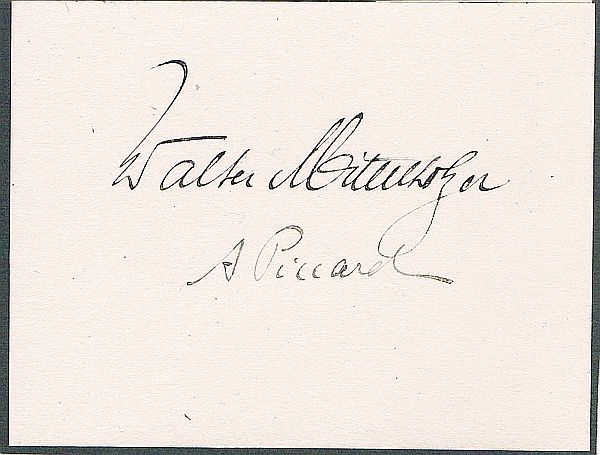 Walter Mittelholzer
A Piccard